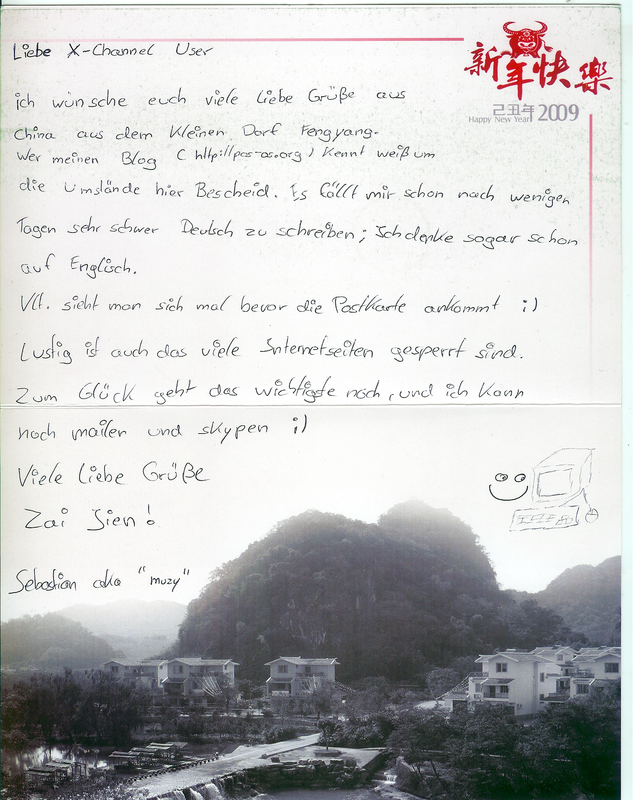 新年快樂
己丑年
Happy New Year! 2009
Liebe X-Channel User
ich wünsche euch viele Liebe Grüße aus
China aus dem Kleinen Dorf Fengyang.
Wer meinen Blog ( http://pcs-os.org ) Kennt weiß um
die Umstände hier Bescheid. Es fällt mir schon nach wenigen
Tagen sehr schwer Deutsch zu schreiben; Ich denke sogar schon
auf Englisch.
Vlt. sieht man sich mal bevor die Postkarte ankommt ;)
Lustig ist auch das viele Internetseiten gesperrt sind.
Zum Glück geht das wichtigste noch, und ich Kann
noch mailen und skypen ;)
Viele Liebe Grüße
Zai Jien!
Sebastian aka "muzy"